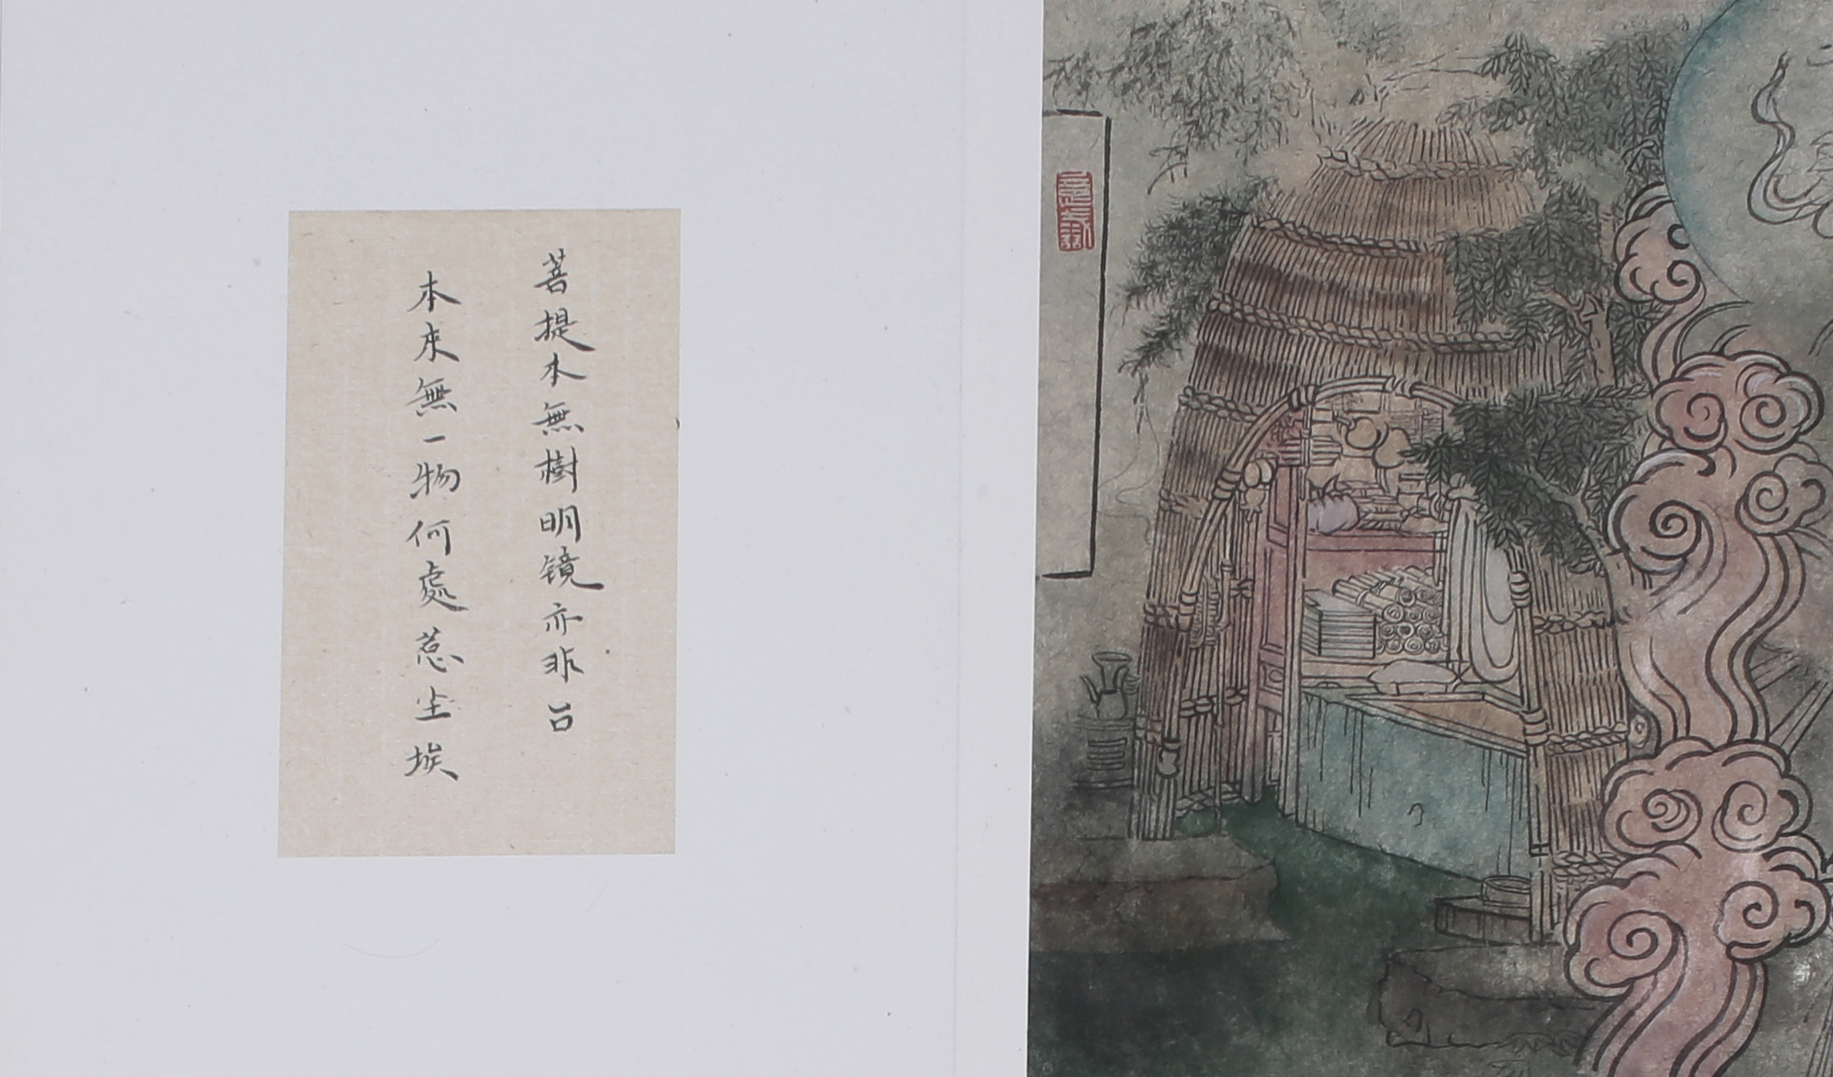 菩提本無樹明镜亦非台
本来無一物何處惹尘埃